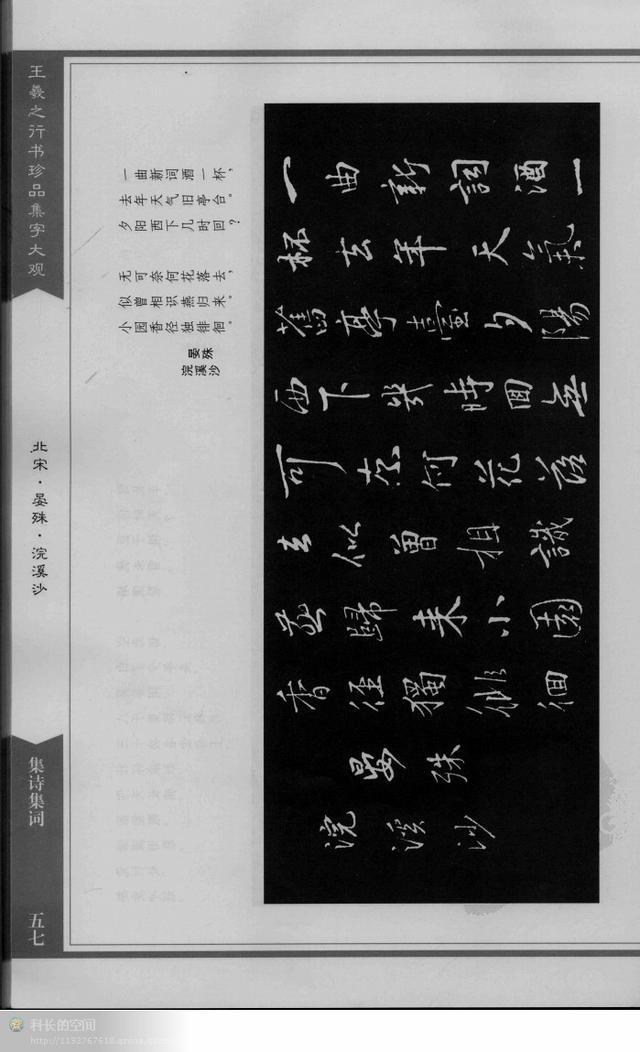 王羲之行书珍品集字大观
北宋·晏殊·浣溪沙
集诗集词
五七
一曲新词酒一杯，
去年天气旧亭台。
夕阳西下几时回？
无可奈何花落去，
似曾相识燕归来。
小园香径独徘徊。
晏殊
浣溪沙
一曲新詞酒一
杯去年天氣
舊亭臺夕陽
西下幾時回無
可奈何花落
去似曾相識
燕歸来小園
香徑獨徘徊
晏殊
浣溪沙
科长的空间